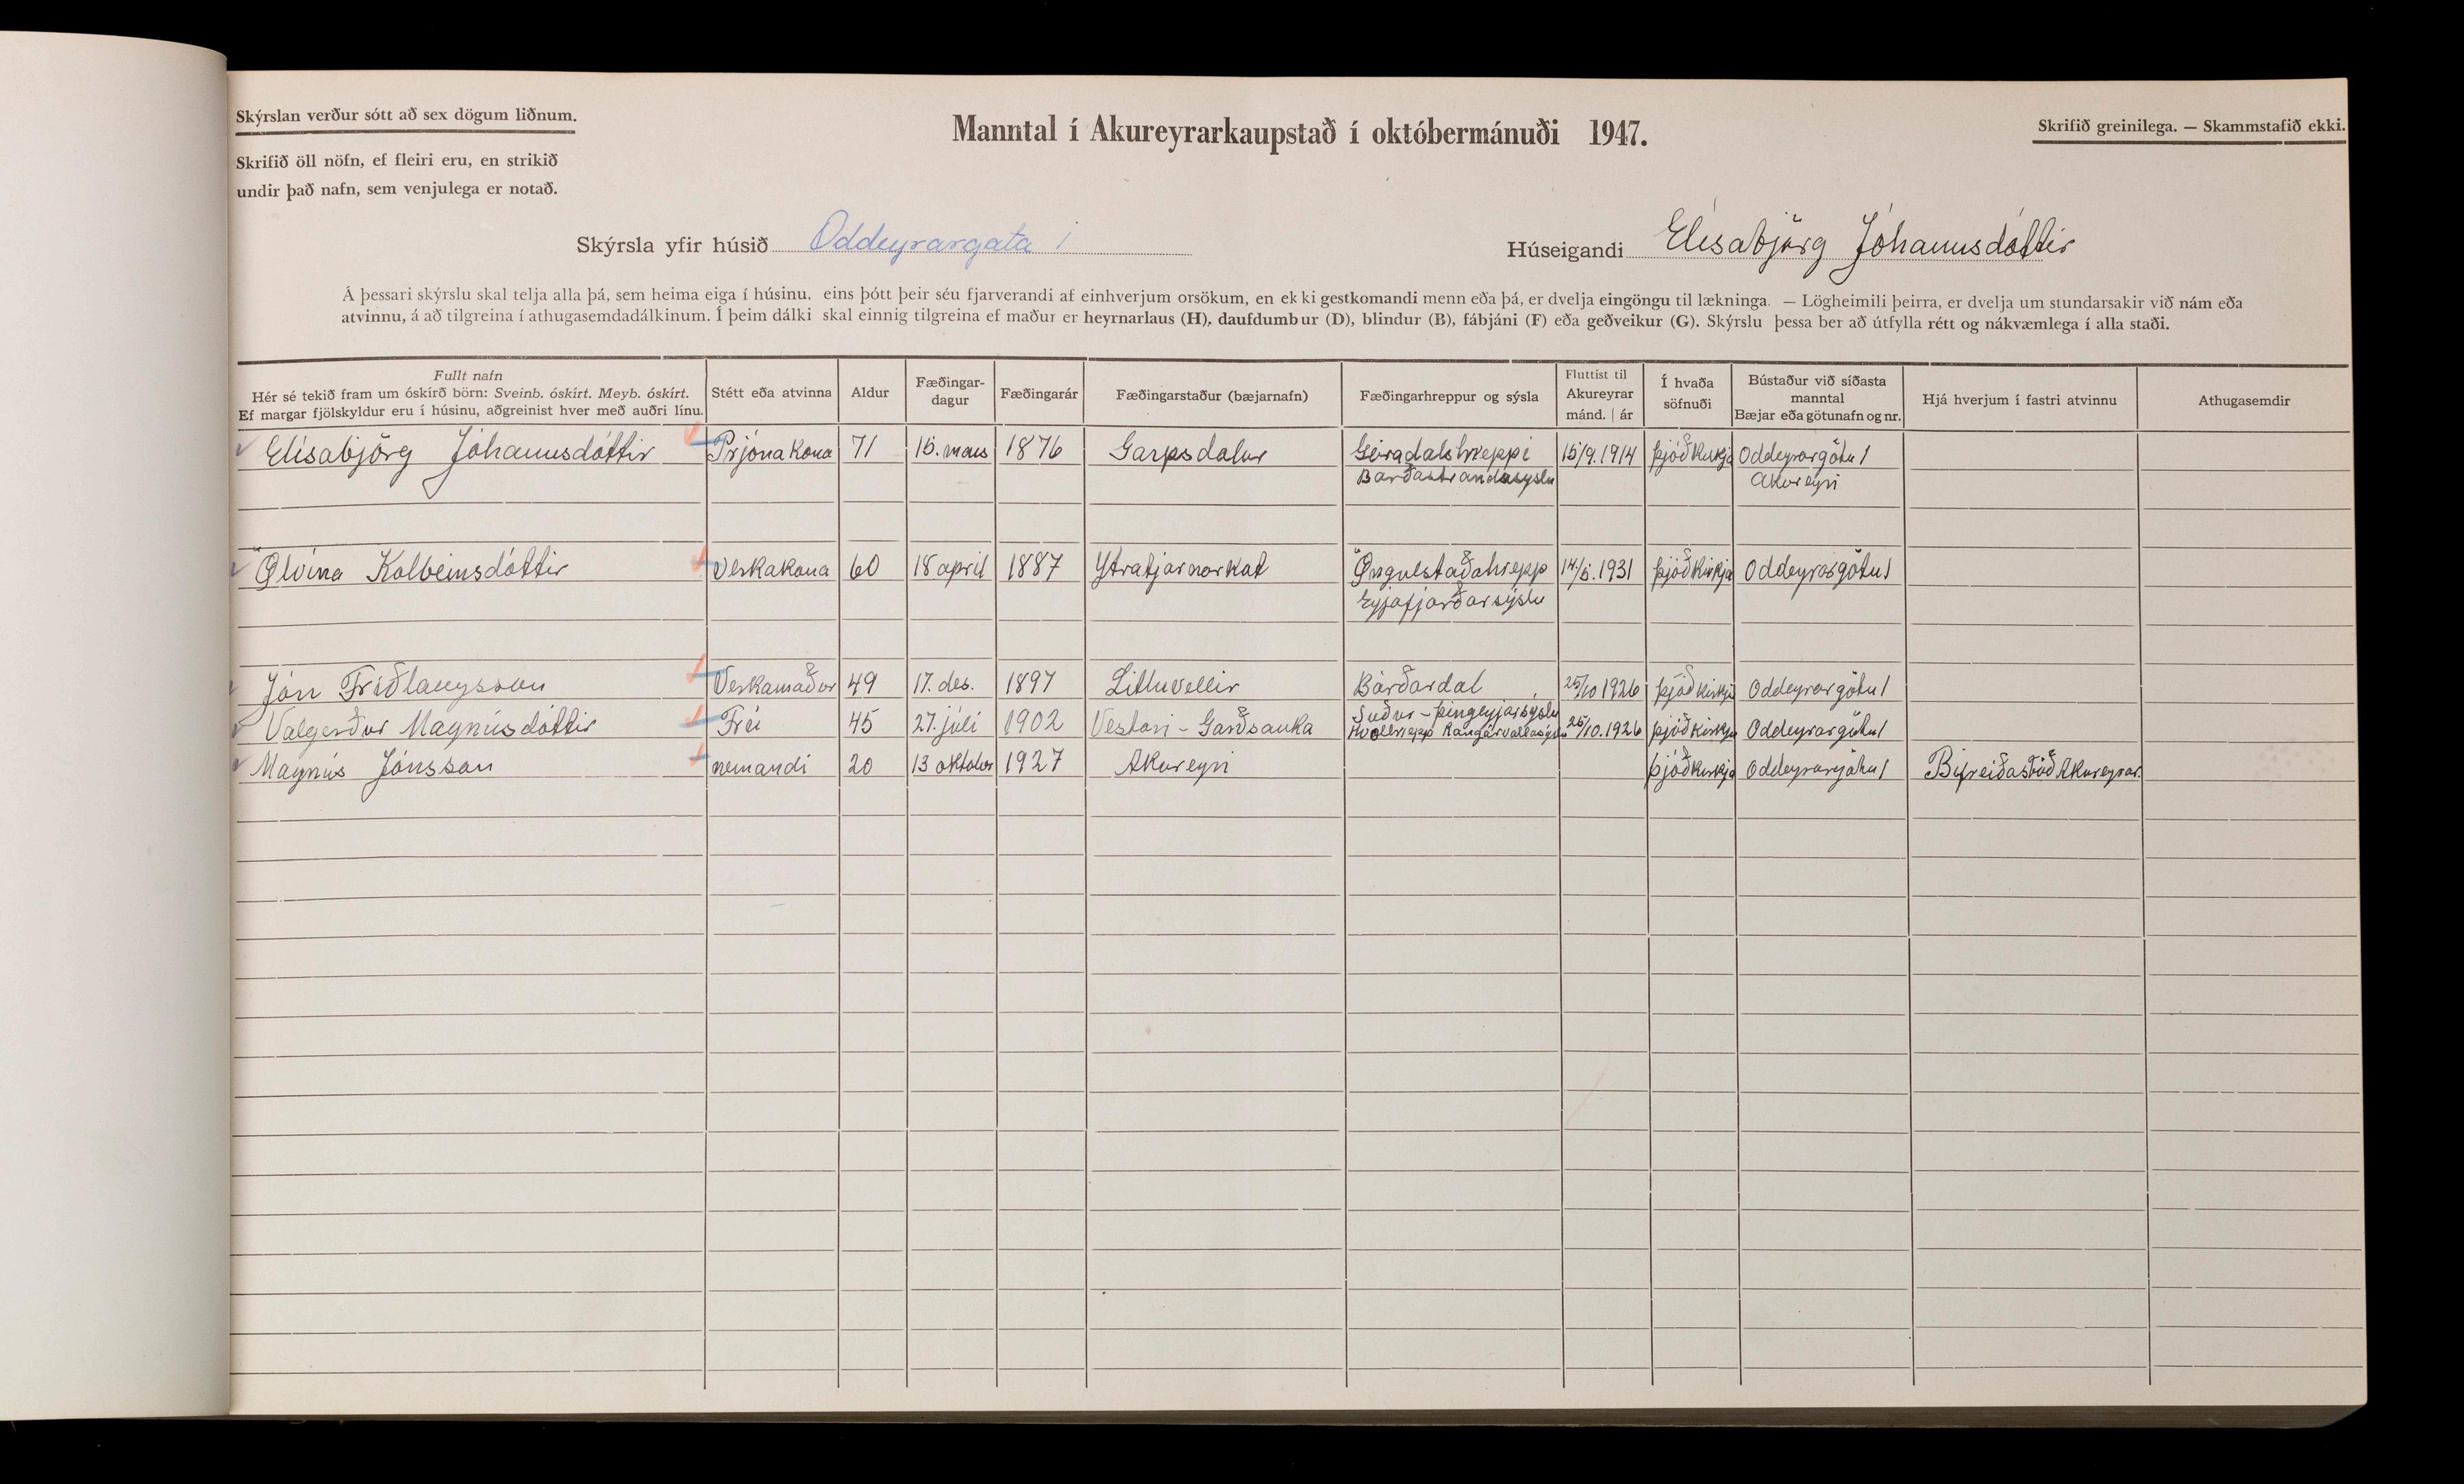 Skýrslan verður sótt að sex dögum liðnum.
Manntal í Akureyrarkaupstað í októbermánuði 1947.
Skrifið greinilega. — Skammstafið ekki.
Skrifið öll nöfn, ef fleiri eru, en strikið
undir það nafn, sem venjulega er notað.
Skýrsla yfir húsið Oddeyrargata 1
Húseigandi Elísabjörg Jóhannsdóttir
Á þessari skýrslu skal telja alla þá, sem heima eiga í húsinu, eins þótt þeir séu fjarverandi af einhverjum orsökum, en ekki gestkomandi menn eða þá, er dvelja eingöngu til lækninga. — Lögheimili þeirra, er dvelja um stundarsakir við nám eða
atvinnu, á að tilgreina í athugasemdadálkinum. Í þeim dálki skal einnig tilgreina ef maður er heyrnarlaus (H), daufdumbur (D), blindur (B), fábjáni (F) eða geðveikur (G). Skýrslu þessa ber að útfylla rétt og nákvæmlega í alla staði.
Fullt nafn
Hér sé tekið fram um óskírð börn: Sveinb. óskírt. Meyb. óskírt.
Ef margar fjölskyldur eru í húsinu, aðgreinist hver með auðri línu.
Stétt eða atvinna
Aldur
Fæðingar-
dagur
Fæðingarár
Fæðingarstaður (bæjarnafn)
Fæðingarhreppur og sýsla
Fluttist til
Akureyrar
mánd. | ár
Í hvaða
söfnuði
Bústaður við síðasta
manntal
Bæjar eða götunafn og nr.
Hjá hverjum í fastri atvinnu
Athugasemdir
Elísabjörg Jóhannsdóttir Prjónakona 71 15. mars 1876 Garpsdalur Geiradalshreppi 15/9.1914 þjóðkirkja Oddeyrargötu 1
Barðastrandasýslu Akureyri
Ölvína Kolbeinsdóttir Verkakona 60 18 apríl 1887 Ytratjarnarkot Öngulstaðahrepp 14/5.1931 þjóðkirkja Oddeyrargötu 1
Eyjafjarðarsýslu
Jón Friðlaugsson Verkamaður 49 17. des. 1897 Litluvellir Bárðardal 25/10 1926 þjóðkirkja Oddeyrargötu 1
Suður-Þingeyjarsýslu
Valgerður Magnúsdóttir Frú 45 27. júlí 1902 Vestari-Garðsauka Hvolhrepp Rangárvallasýslu 25/10.1926 þjóðkirkja Oddeyrargötu 1
Magnús Jónsson nemandi 20 13 október 1927 Akureyri þjóðkirkja Oddeyrargötu 1 Bifreiðastöð Akureyrar.